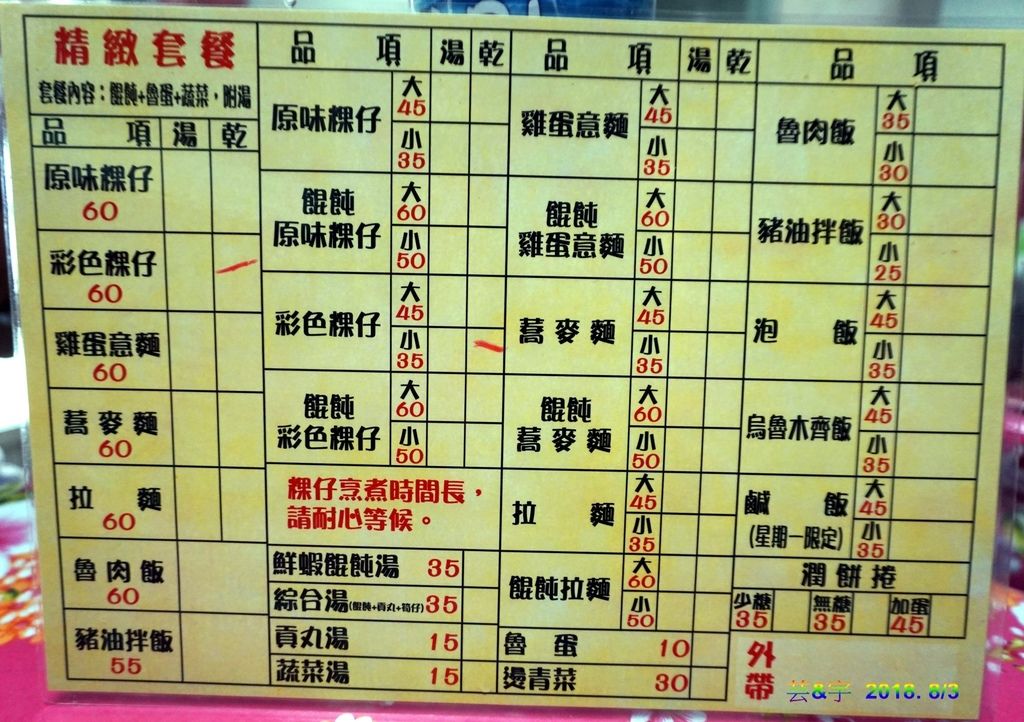 精緻套餐
套餐內容：餛飩+魯蛋+蔬菜，附湯
品項 湯 乾
原味粿仔
60
彩色粿仔
60
雞蛋意麵
60
蕎麥麵
60
拉麵
60
魯肉飯
60
豬油拌飯
55
品項 湯 乾
原味粿仔
大
45
小
35
餛飩
原味粿仔
大
60
小
50
彩色粿仔
大
45
小
35
餛飩
彩色粿仔
大
60
小
50
粿仔烹煮時間長，
請耐心等候。
鮮蝦餛飩湯 35
綜合湯(餛飩+貢丸+筍仔) 35
貢丸湯 15
蔬菜湯 15
品項 湯 乾
雞蛋意麵
大
45
小
35
餛飩
雞蛋意麵
大
60
小
50
蕎麥麵
大
45
小
35
餛飩
蕎麥麵
大
60
小
50
拉麵
大
45
小
35
餛飩拉麵
大
60
小
50
魯蛋 10
燙青菜 30
品項
魯肉飯
大
35
小
30
豬油拌飯
大
30
小
25
泡飯
大
45
小
35
烏魯木齊飯
大
45
小
35
鹹飯
(星期一限定)
大
45
小
35
潤餅捲
少糖
35
無糖
35
加蛋
45
外
帶
芸&宇 2018. 8/3